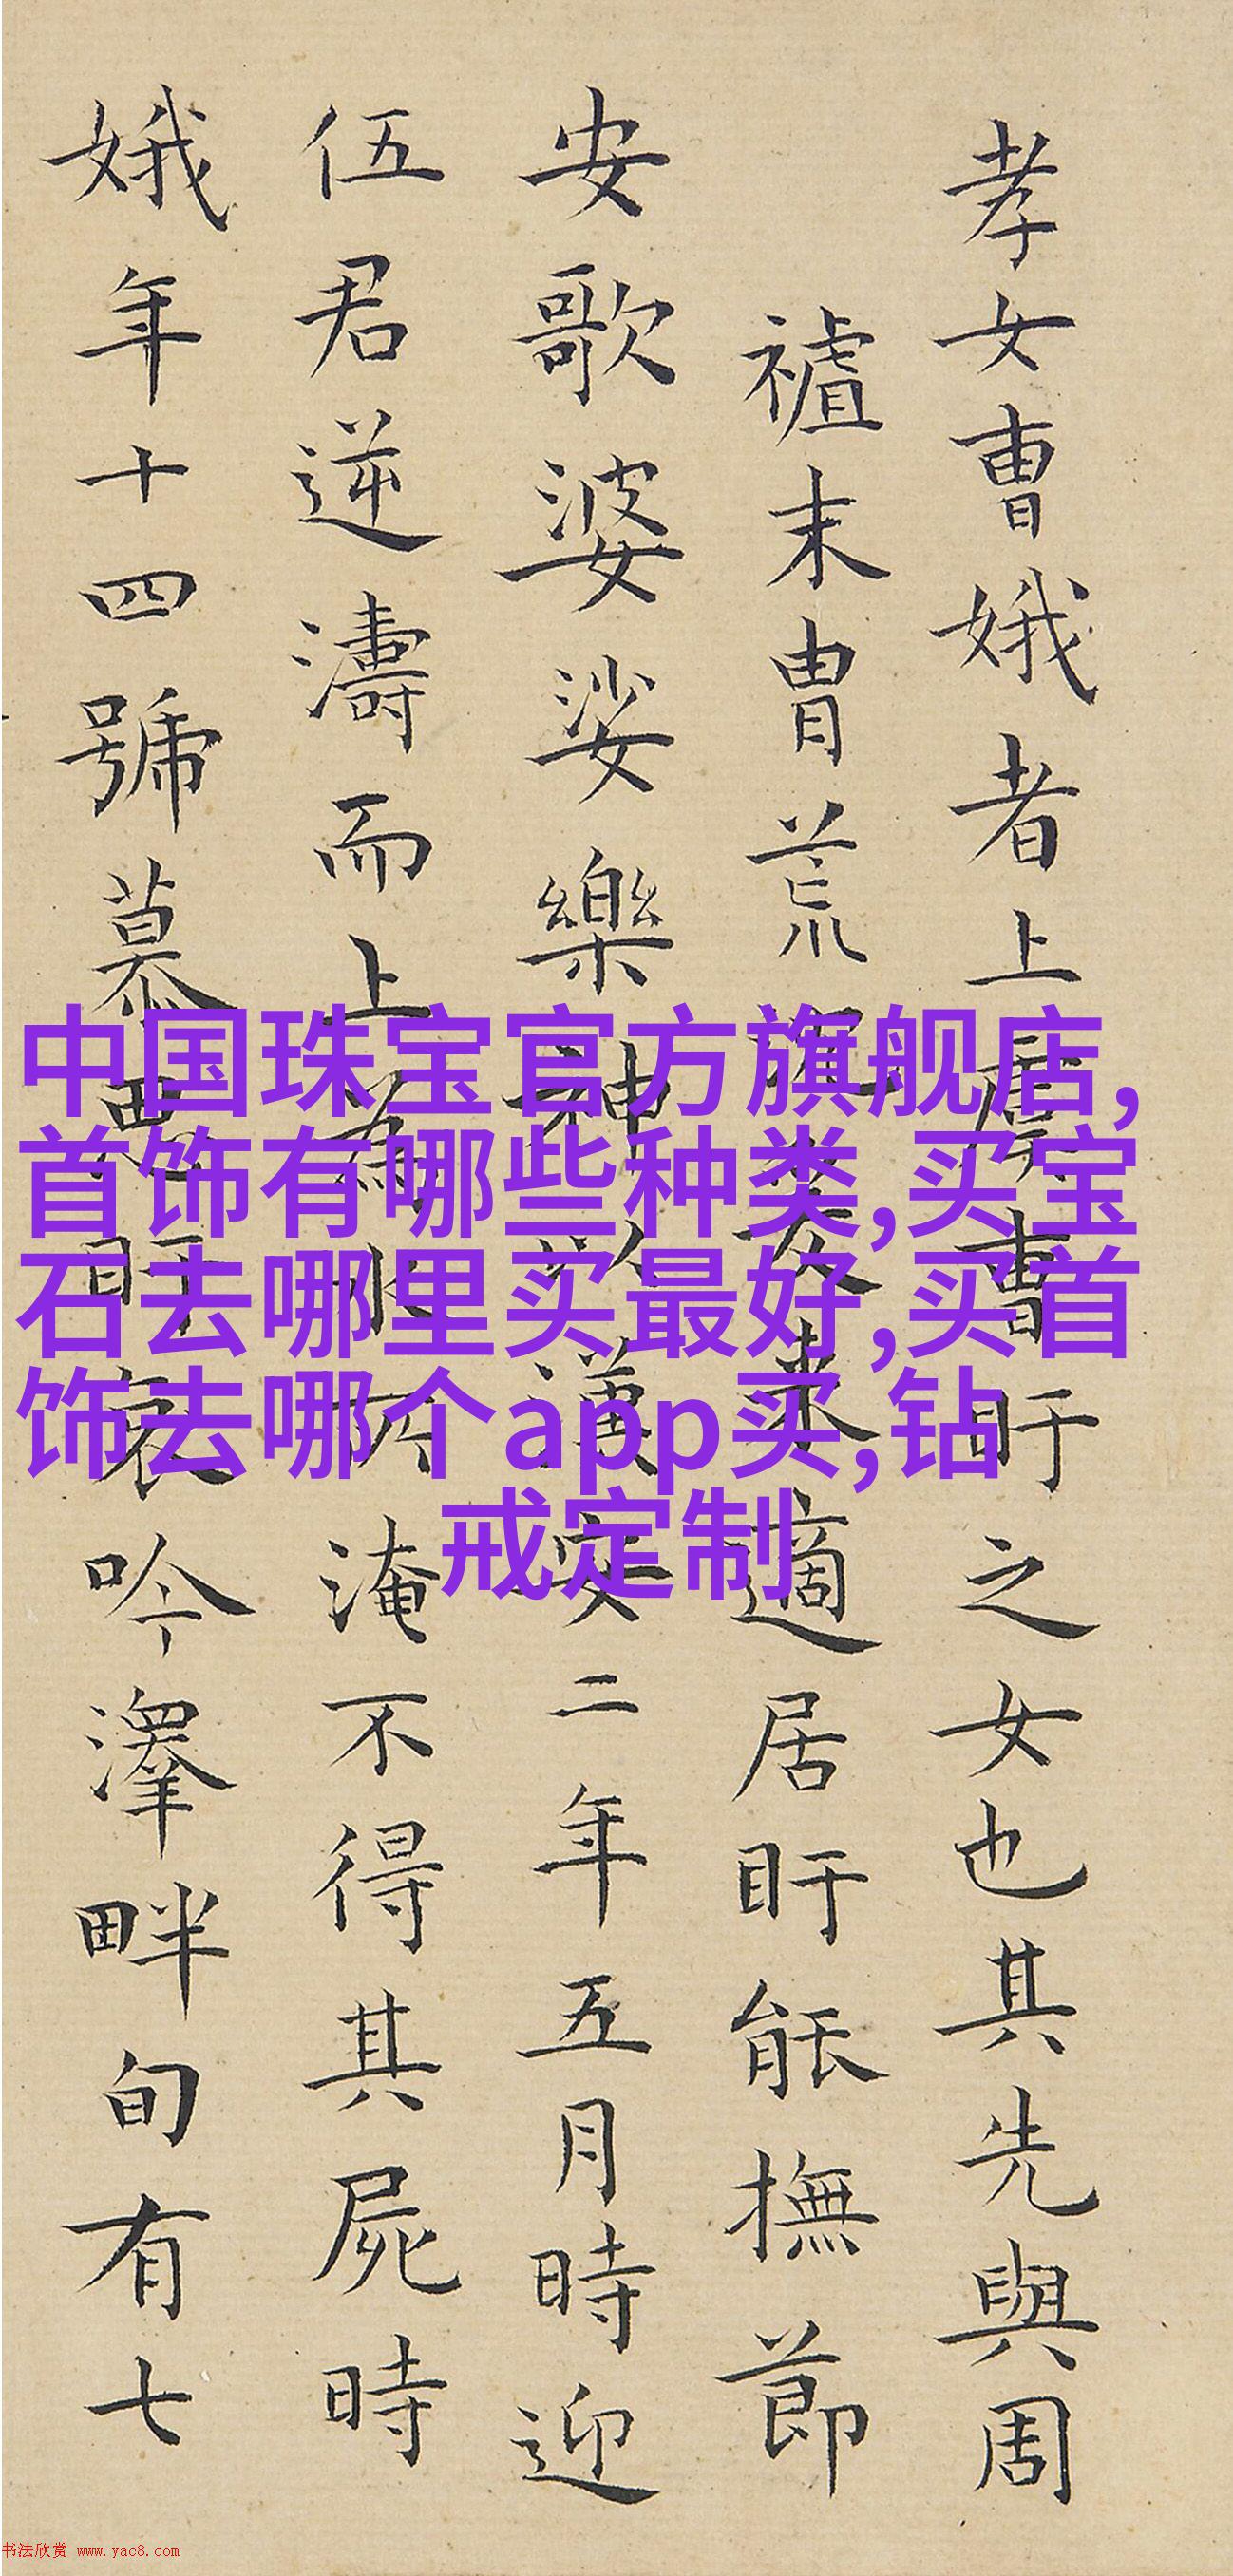 孝女曹娥者上虞曹盱之女也其先與周
末胄荒沉爰来適居盱能撫節
安歌婆娑樂神以漢安二年五月時迎
伍君逆濤而上為水所淹不得其屍時
娥年十四號慕思盱哀吟澤畔旬有七
中国珠宝官方旗舰店,
首饰有哪些种类,买宝
石去哪里买最好,买首
饰去哪个app买,钻
戒定制
书法欣赏 www.yac8.com